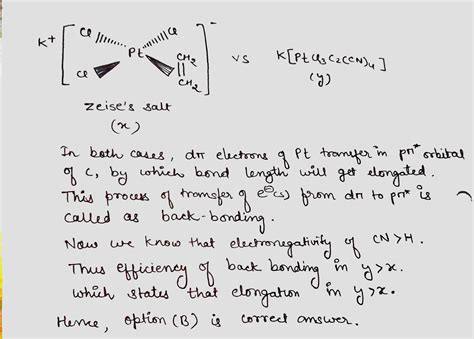 K+ [Cl Cl Pt Cl CH2 = CH2]⁻ vs K[PtCl3C2(CN)4]
(y)
Zeise's salt
(x)
In both cases, dπ electrons of Pt transfer in pπ* orbital
of C, by which bond length will get elongated.
This process of transfer of e⊖(s) from dπ to pπ* is
called as back-bonding.
Now we know that electronegativity of CN>H.
Thus efficiency of back bonding in y>x.
which states that elongation in y>x.
Hence, option (B) is correct answer.